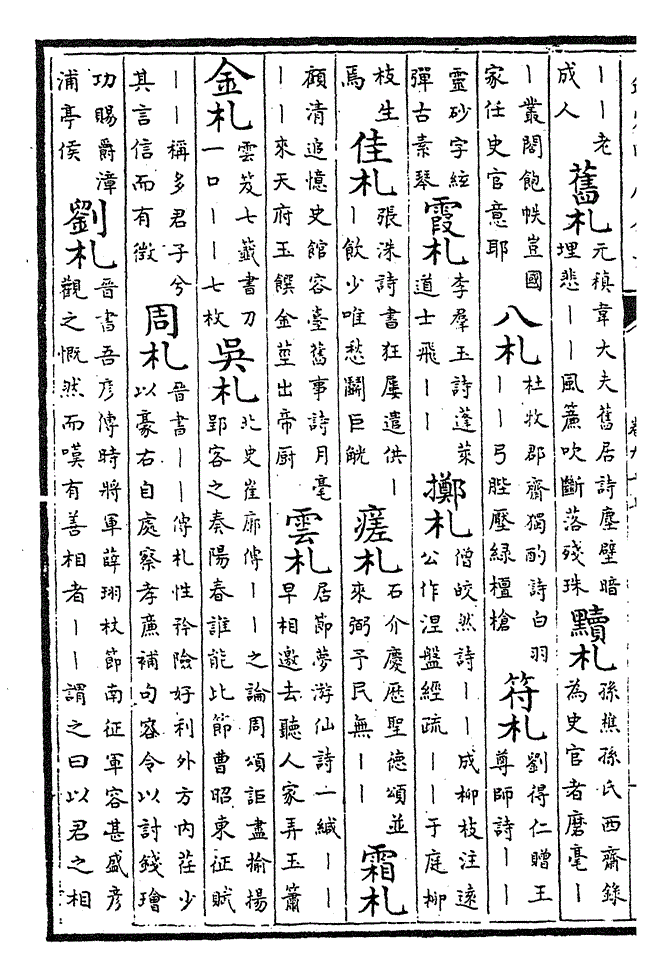 ｜｜老成人 舊札 元稹韋大夫舊居詩塵壁暗埋悲｜｜風簾吹斷落殘珠 黷札 孫樵孫氏西齋錄為史官者磨毫｜
｜叢閣飽帙豈國家任史官意耶 八札 杜牧郡齋獨酌詩白羽｜｜弓胜壓綠檀槍 符札 劉得仁贈王尊師詩｜｜
靈砂字經彈古素琴 霞札 李羣玉詩蓬萊道士飛｜｜ 擲札 僧皎然詩｜｜成柳枝注遠公作涅盤經疏｜｜于庭柳
枝生焉 佳札 張洙詩書狂屢遣供｜｜飲少唯愁鬬巨觥 瘥札 石介慶歷聖德頌並來弼予民無｜｜ 霜札
顧清追憶史館容臺舊事詩月毫｜｜來天府玉饌金莖出帝厨 雲札 居節夢游仙詩一緘｜｜早相邀去聽人家弄玉簫
金札 雲笈七籤書刀一口｜｜七枚 吳札 北史崔廓傳｜｜之論周頌詎盡揄揚郢客之奏陽春誰能比節曹昭東征賦
｜｜稱多君子兮其言信而有徵 周札 晉書｜｜傳札性矜險好利外方內荏少以豪右自處察孝廉補句容令以討錢璯
功賜爵漳浦亭侯 劉札 晉書吾彥傳時將軍薛珝杖節南征軍容甚盛彥觀之慨然而嘆有善相者｜｜謂之曰以君之相